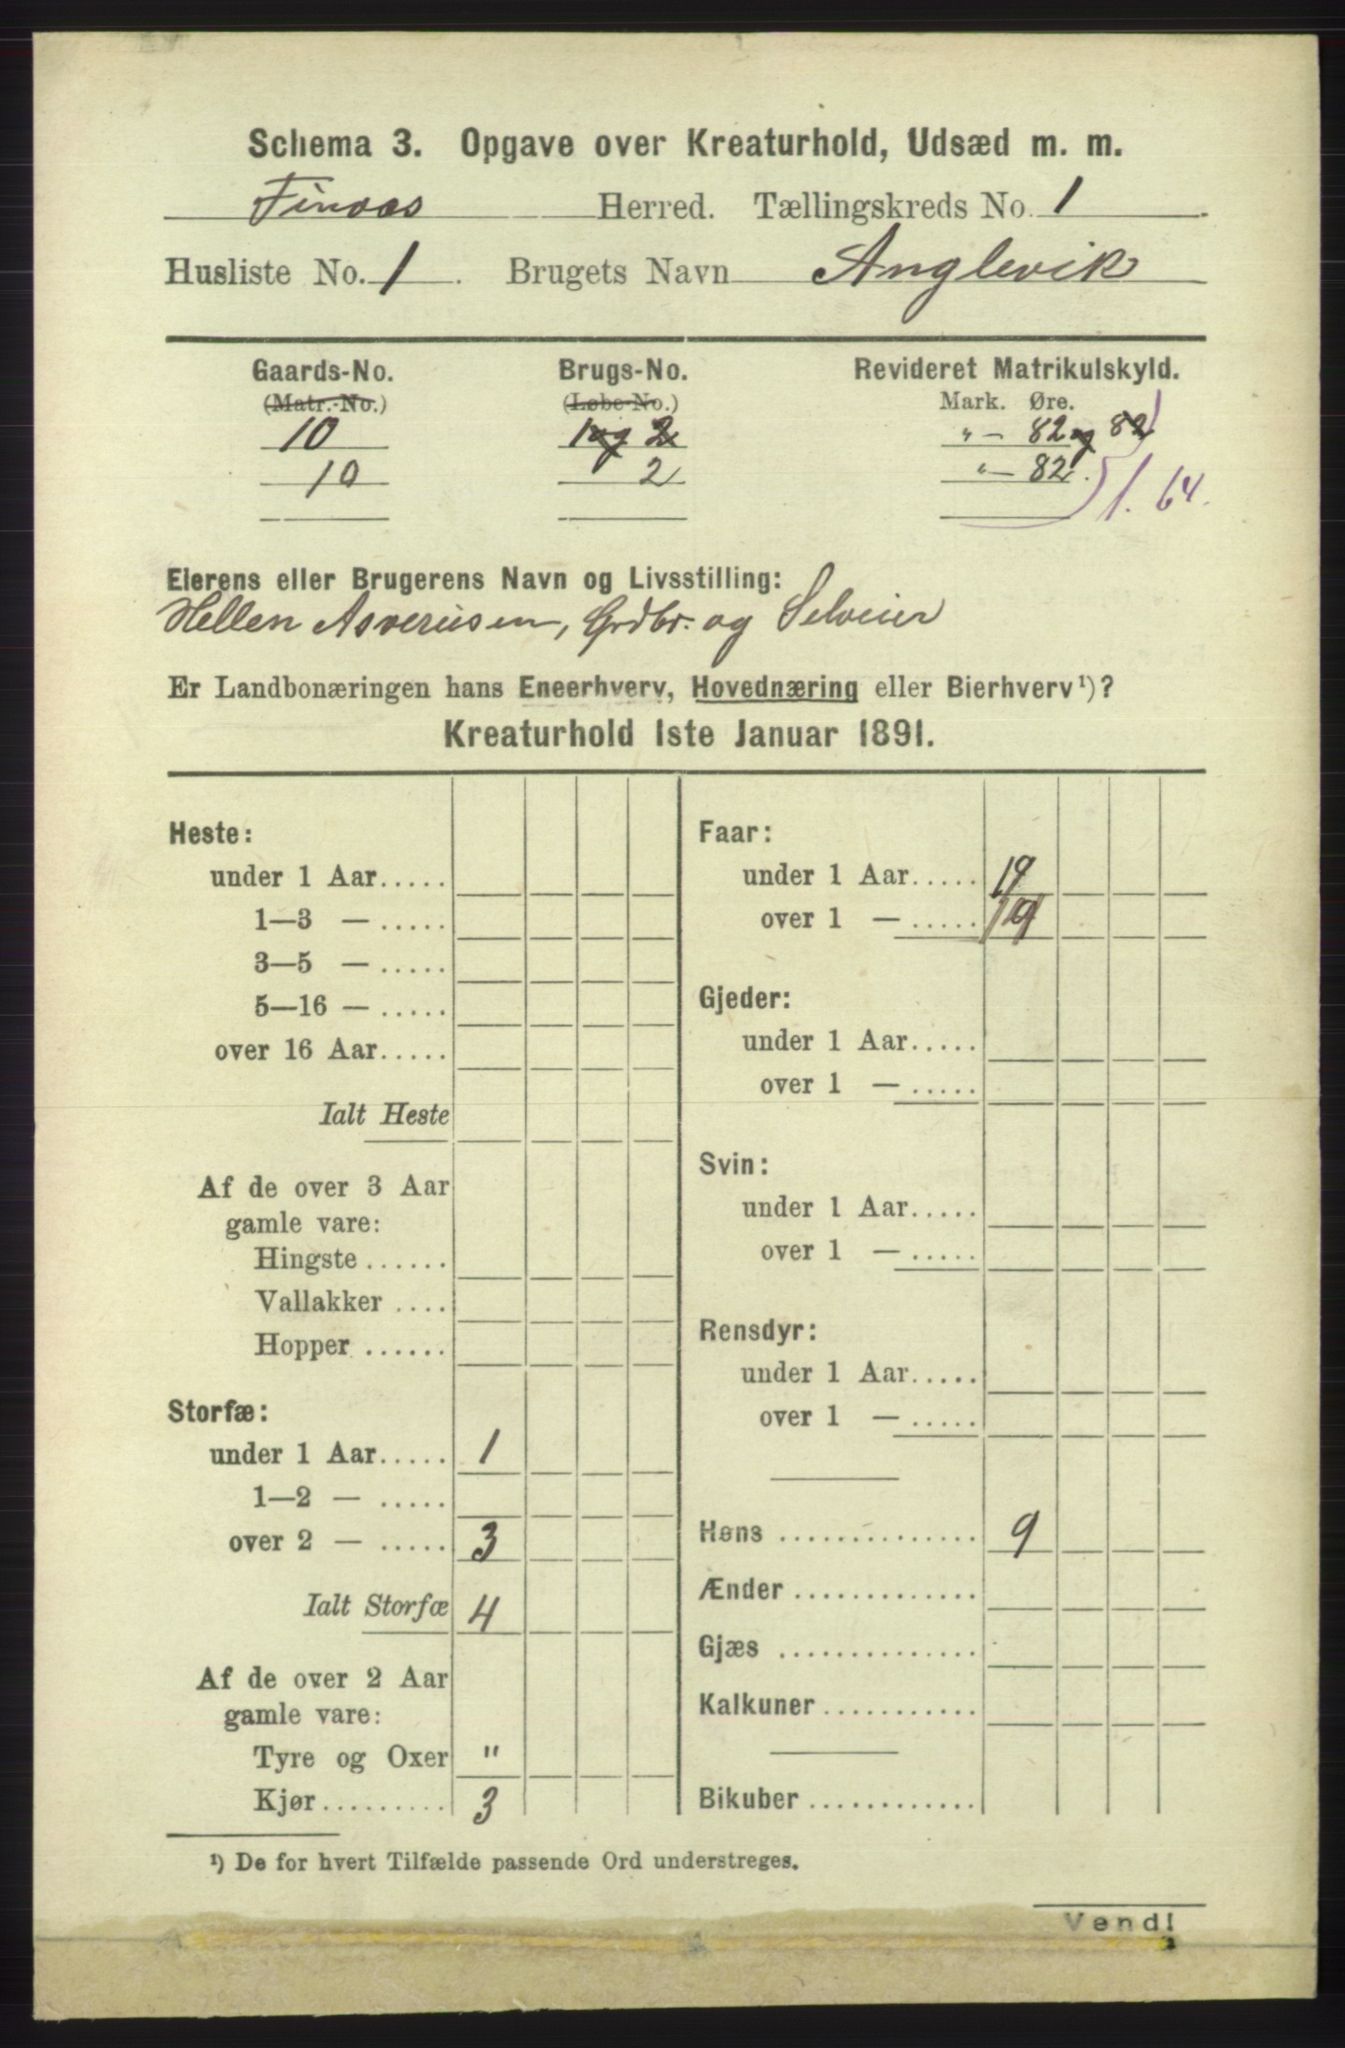 Schema 3. Opgave over Kreaturhold, Udsæd m. m.
Finaas Herred. Tællingskreds No. 1
Husliste No. 1. Brugets Navn Anglevik
Gaards-No. Brugs-No. Revideret Matrikulskyld.
(Matr.-No.) (Løbe-No.) Mark. Øre.
10 1 og 2 " - 82 og 82
10 2 " - 82. 1. 64.
Eierens eller Brugerens Navn og Livsstilling:
Hellen Asverusen, Grdbr. og Selveier
Er Landbonæringen hans Eneerhverv, Hovednæring eller Bierhverv¹)?
Kreaturhold 1ste Januar 1891.
Heste:
under 1 Aar.....
1—3 — .....
3—5 — .....
5—16 — .....
over 16 Aar.....
Ialt Heste
Af de over 3 Aar
gamle vare:
Hingste ......
Vallakker ....
Hopper ......
Storfæ:
under 1 Aar..... 1
1—2 — .....
over 2 — ..... 3
Ialt Storfæ 4
Af de over 2 Aar
gamle vare:
Tyre og Oxer "
Kjør......... 3
Faar:
under 1 Aar..... 19
over 1 — ..... 19
Gjeder:
under 1 Aar.....
over 1 — .....
Svin:
under 1 Aar.....
over 1 — .....
Rensdyr:
under 1 Aar.....
over 1 — .....
Høns .............. 9
Ænder .............
Gjæs ..............
Kalkuner ...........
Bikuber ............
¹) De for hvert Tilfælde passende Ord understreges.
Vend!